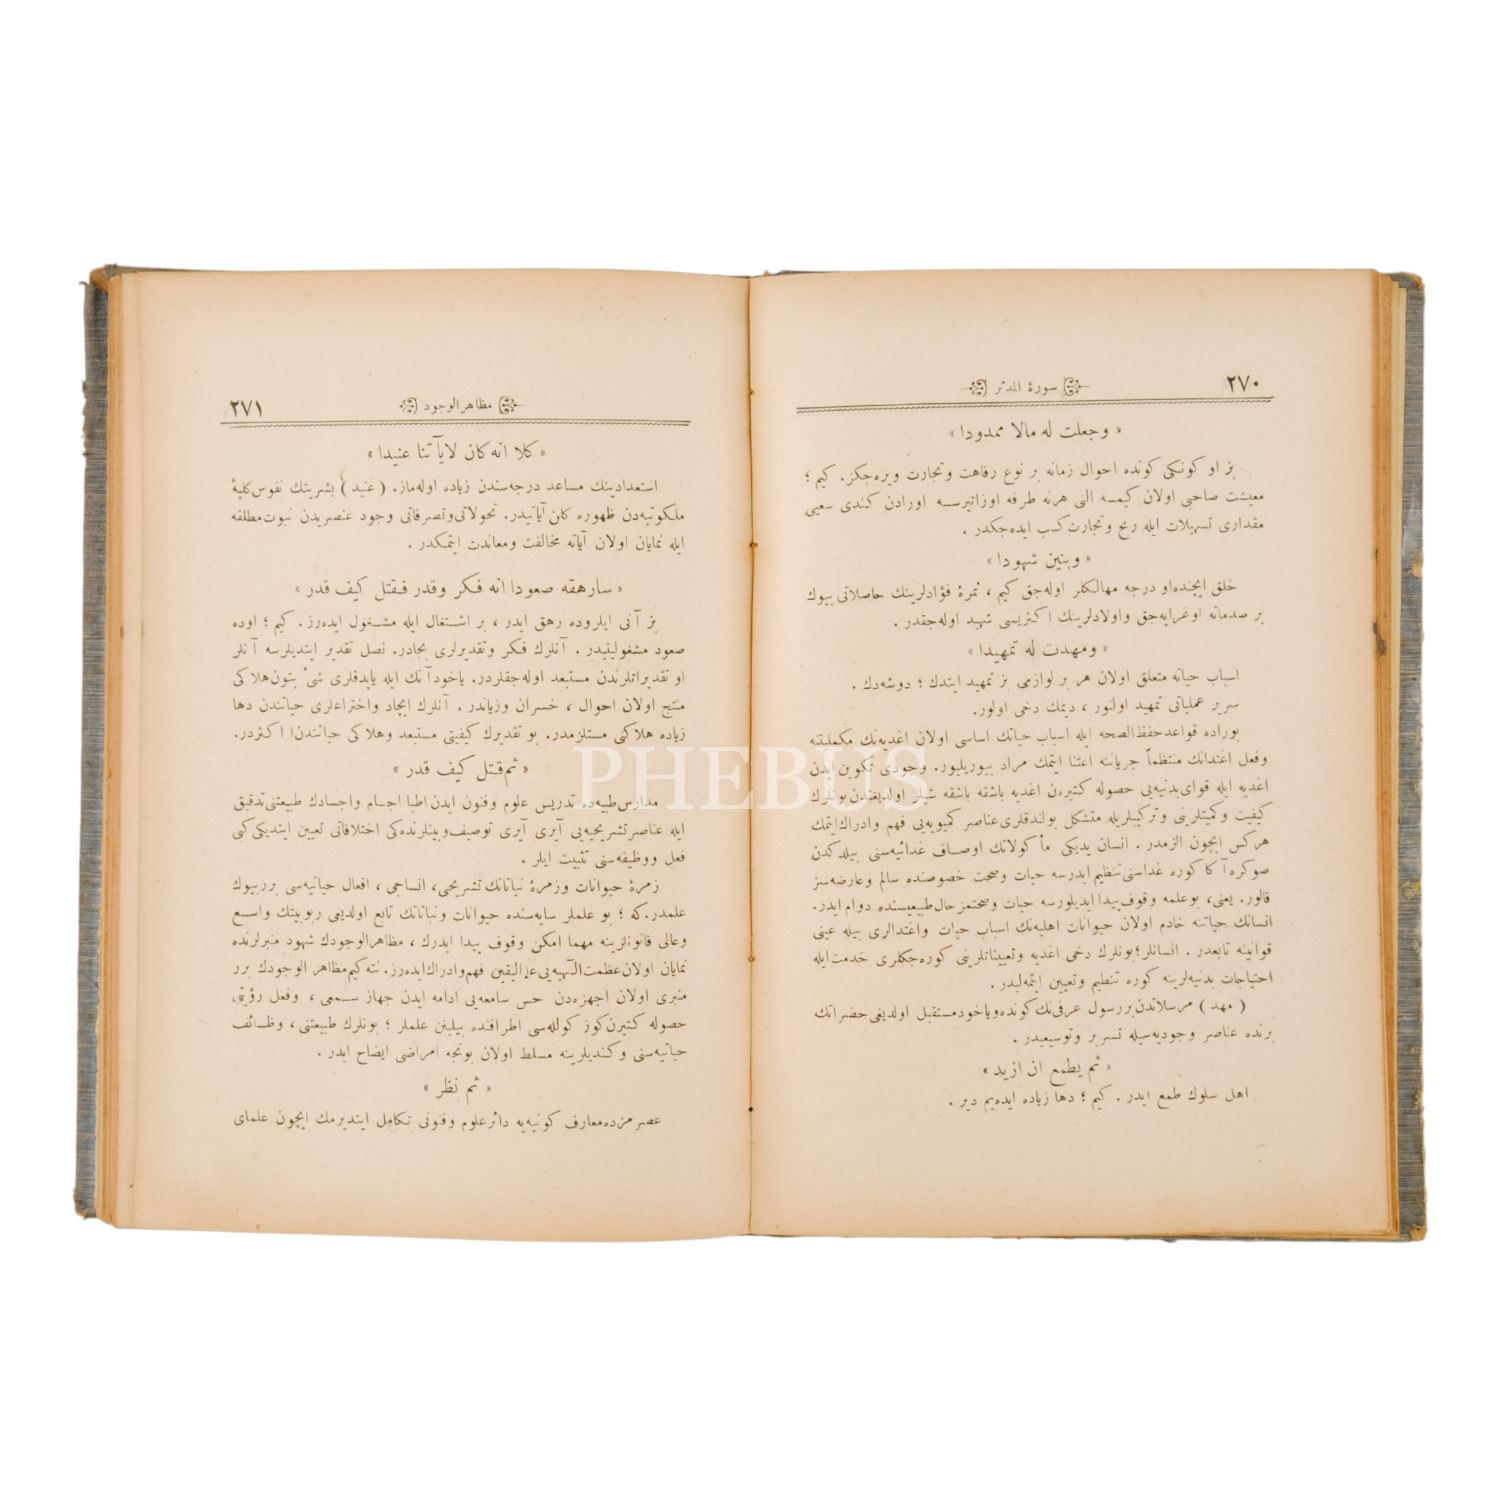 ٢٧٠
سورة المدثر
« وجعلت له مالا ممدودا »
بز او كونكى كونده احوال زمانه بر نوع رفاهت وتجارت ويره جكز. كيم ؛
معيشت صاحبى اولان كيمسه الى هرنه طرفه اوزاتيرسه اورادن كندى سعيى
مقدارى تسهيلات ايله ربح وتجارت كسب ايده جكدر .
« وبنين شهودا »
خلق ايچنده او درجه مهالكلر اوله جق كيم ، ثمرهٔ فؤادلرينك حاصلاتى بيوك
بر صدماته اوغرايه جق واولادلرينك اكثريسى شهيد اوله جقدر .
« ومهدت له تمهيدا »
اسباب حياته متعلق اولان هر بر لوازمى بز تمهيد ايتدك ؛ دوشه دك .
سرير عملياتى تمهيد اولنور ، ديمك دخى اولور.
بوراده قواعد حفظ الصحه ايله اسباب حياتك اساسى اولان اغديه نك مكمليتنه
وفعل اغتدانك منتظماً جرياننه اعتنا ايتمك مراد بيوريليور. وجودى تكوين ايدن
اغديه ايله قواى بدنيه يى حصوله كتيره ن اغديه باشقه باشقه شيلر اولديغندن بونلرك
كيفيت وكميتلرينى وتركيبلريله متشكل بولندقلرى عناصر كميويه يى فهم وادراك ايتمك
هركس ايچون الزمدر . انسان يديكى مأكولاتك اوصاف غدائيه سنى بيلدكدن
صوكره آكا كوره غداسنى تنظيم ايدرسه حيات وصحت خصوصنده سالم وعارضه سز
قالور. يعنى، بوعلمه وقوف پيدا ايديلورسه حيات وصحتمز حال طبيعيسنده دوام ايدر.
انسانك حياتنه خادم اولان حيوانات اهليه نك اسباب حيات واغتدالرى بيله عينى
قوانينه تابعدر . انسانلر؛ بونلرك دخى اغديه وتعييناتلرينى كوره جكلرى خدمت ايله
احتياجات بدنيه لرينه كوره تنظيم وتعيين ايتمه ليدر .
( مهد ) مرسلاتدن بر رسول عرفى نك كونده وياخود مستقبل اولديغى حضراتك
برنده عناصر وجوديه سيله تسرير وتوسيعيدر .
« ثم يطمع ان ازيد »
اهل سلوك طمع ايدر . كيم ؛ دها زياده ايده يم دير .
٢٧١
مظاهر الوجود
« كلا انه كان لايآتنا عنيدا »
استعدادينك مساعد درجه سندن زياده اوله ماز. ( عنيد ) بشرينك نفوس كليهٔ
ملكوتيه دن ظهوره كلن آياتيدر. تحولاتى وتصرفاتى وجود عنصريدن نبوت مطلقه
ايله نمايان اولان آياته مخالفت ومعاندت ايتمكدر .
« سارهقه صعودا انه فكر وقدر فقتل كيف قدر »
بز آنى ايلروده رهق ايدر ، بر اشتغال ايله مشغول ايده رز. كيم ؛ اوده
صعود مشغوليتيدر . آنلرك فكر وتقديرلرى بجادر. نصل تقدير ايتديلرسه آنلر
او تقديراتلرندن مستبعد اوله جقلردر. ياخود آنك ايله ياپدقلرى شىء بتون هلاكى
منتج اولان احوال ، خسران وزياندر . آنلرك ايجاد واختراعلرى حياتندن دها
زياده هلاكنى مستلزمدر. بو تقديرك كيفيتى مستبعد وهلاكى حياتندن اكثردر.
« ثم قتل كيف قدر »
مدارس طبيه ده تدريس علوم وفنون ايدن اطبا اجسام واجسادك طبيعتنى تدقيق
ايله عناصر تشريحيه يى آيرى آيرى توصيف وبينلرنده كى اختلافاتى تعيين ايتديكى كبى
فعل ووظيفه سنى تثبيت ايلر .
زمرهٔ حيوانات وزمرهٔ نباتاتك تشريحى، انساجى ، افعال حياتيه سى برر بيوك
علمدر. كه ؛ بو علملر سايه سنده حيوانات ونباتاتك تابع اولديغى ربوبيتك واسع
وعالى قانونلرينه مهما امكن وقوف پيدا ايدرك ، مظاهر الوجودك شهود منبرلرنده
نمايان اولان عظمت الٓهيه يى علم اليقين فهم وادراك ايده رز. نته كيم مظاهر الوجودك برر
منبرى اولان اجهزه دن حس سامعه يى ادامه ايدن جهاز سمعى ، وفعل رؤيتى
حصوله كتيرن كوز كولله سى اطرافنده بيلينن علملر ؛ بونلرك طبيعتنى ، وظائف
حياتيه سنى وكنديلرينه مسلط اولان بونجه امراضى ايضاح ايدر .
« ثم نظر »
عصرمزده معارف كونيه يه دائر علوم وفنونى تكامل ايتديرمك ايچون علماى
PHEBUS